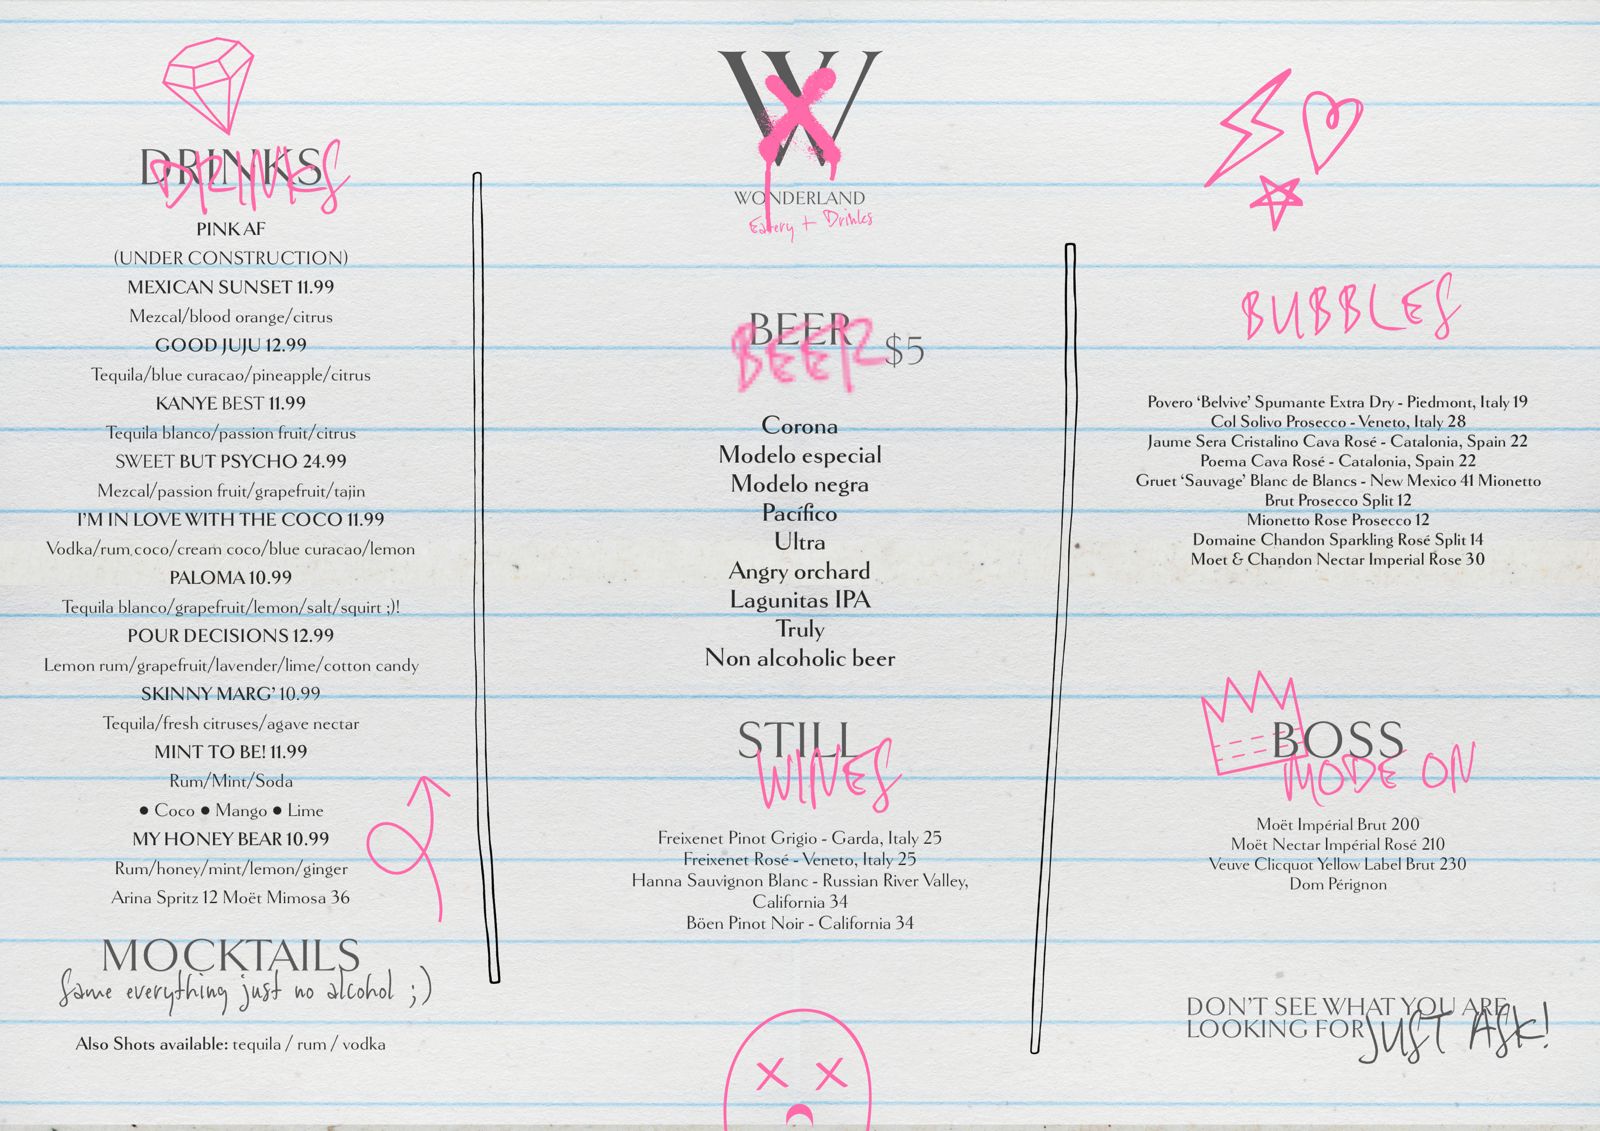 DRINKS
DRINKS
PINK AF
(UNDER CONSTRUCTION)
MEXICAN SUNSET 11.99
Mezcal/blood orange/citrus
GOOD JUJU 12.99
Tequila/blue curacao/pineapple/citrus
KANYE BEST 11.99
Tequila blanco/passion fruit/citrus
SWEET BUT PSYCHO 24.99
Mezcal/passion fruit/grapefruit/tajin
I'M IN LOVE WITH THE COCO 11.99
Vodka/rum coco/cream coco/blue curacao/lemon
PALOMA 10.99
Tequila blanco/grapefruit/lemon/salt/squirt ;)!
POUR DECISIONS 12.99
Lemon rum/grapefruit/lavender/lime/cotton candy
SKINNY MARG' 10.99
Tequila/fresh citruses/agave nectar
MINT TO BE! 11.99
Rum/Mint/Soda
● Coco ● Mango ● Lime
MY HONEY BEAR 10.99
Rum/honey/mint/lemon/ginger
Arina Spritz 12 Moët Mimosa 36
MOCKTAILS
Same everything just no alcohol ;)
Also Shots available: tequila / rum / vodka
W
X
WONDERLAND
Eatery + Drinks
BEER
BEER
$5
Corona
Modelo especial
Modelo negra
Pacífico
Ultra
Angry orchard
Lagunitas IPA
Truly
Non alcoholic beer
STILL
WINES
Freixenet Pinot Grigio - Garda, Italy 25
Freixenet Rosé - Veneto, Italy 25
Hanna Sauvignon Blanc - Russian River Valley,
California 34
Böen Pinot Noir - California 34
BUBBLES
Povero 'Belvive' Spumante Extra Dry - Piedmont, Italy 19
Col Solivo Prosecco - Veneto, Italy 28
Jaume Sera Cristalino Cava Rosé - Catalonia, Spain 22
Poema Cava Rosé - Catalonia, Spain 22
Gruet 'Sauvage' Blanc de Blancs - New Mexico 41 Mionetto
Brut Prosecco Split 12
Mionetto Rose Prosecco 12
Domaine Chandon Sparkling Rosé Split 14
Moet & Chandon Nectar Imperial Rose 30
BOSS
MODE ON
Moët Impérial Brut 200
Moët Nectar Impérial Rosé 210
Veuve Clicquot Yellow Label Brut 230
Dom Pérignon
DON'T SEE WHAT YOU ARE
LOOKING FOR JUST ASK!